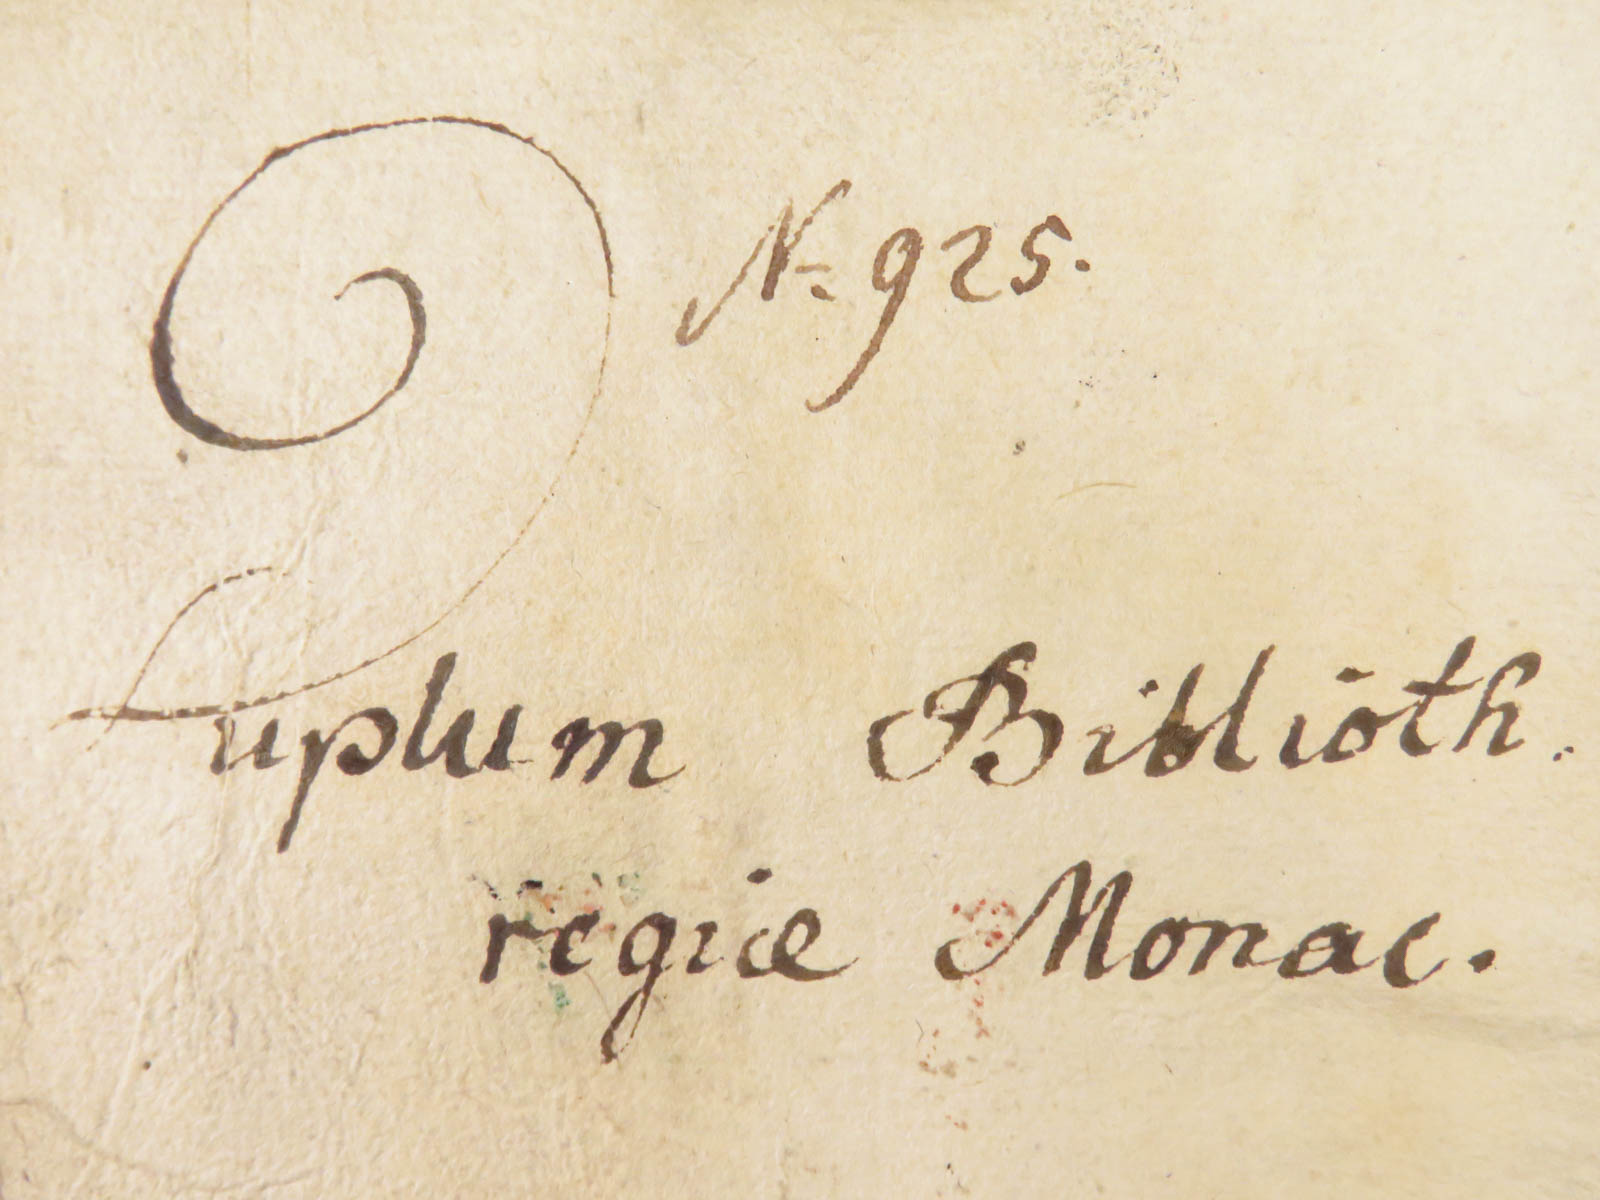 N= 925.
Duplum Biblioth.
regiæ Monac.